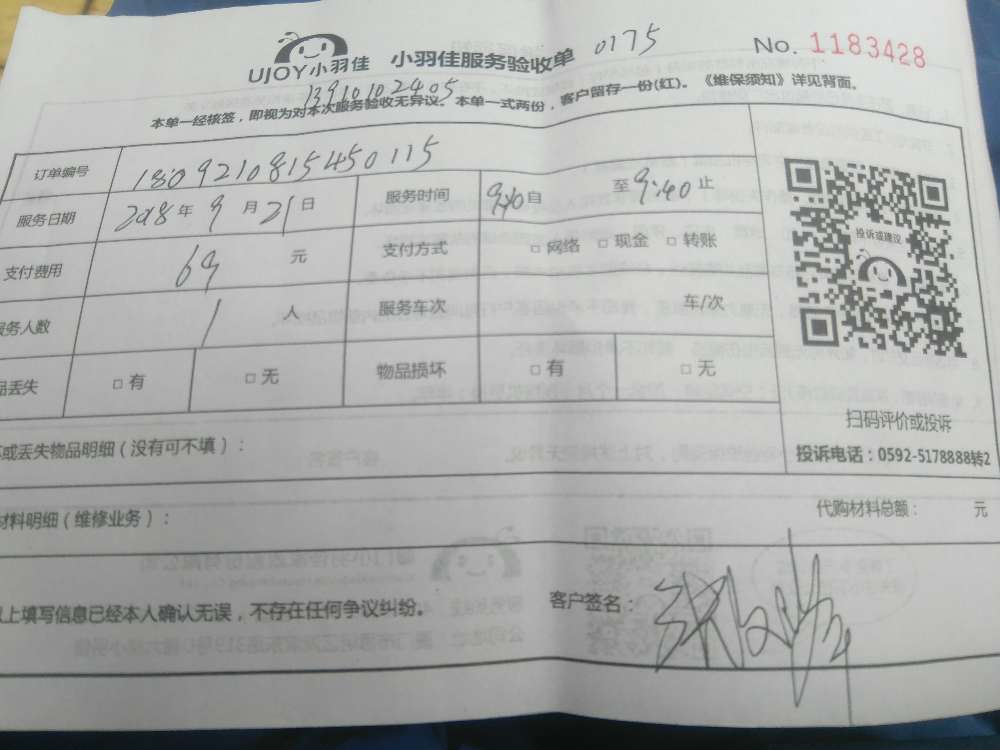 UJOY小羽佳 小羽佳服务验收单 0175 No. 1183428
13910102405
本单一经核签，即视为对本次服务验收无异议。本单一式两份，客户留存一份(红)。《维保须知》详见背面。
订单编号 1809210815450115
服务日期 2018年9月21日 服务时间 9:40自 至9:40止
支付费用 69 元 支付方式 □网络 □现金 □转账
服务人数 1 人 服务车次 车/次
品丢失 □有 □无 物品损坏 □有 □无
投诉或建议
扫码评价或投诉
投诉电话：0592-5178888转2
或丢失物品明细（没有可不填）：
材料明细（维修业务）： 代购材料总额： 元
上填写信息已经本人确认无误，不存在任何争议纠纷。 客户签名：